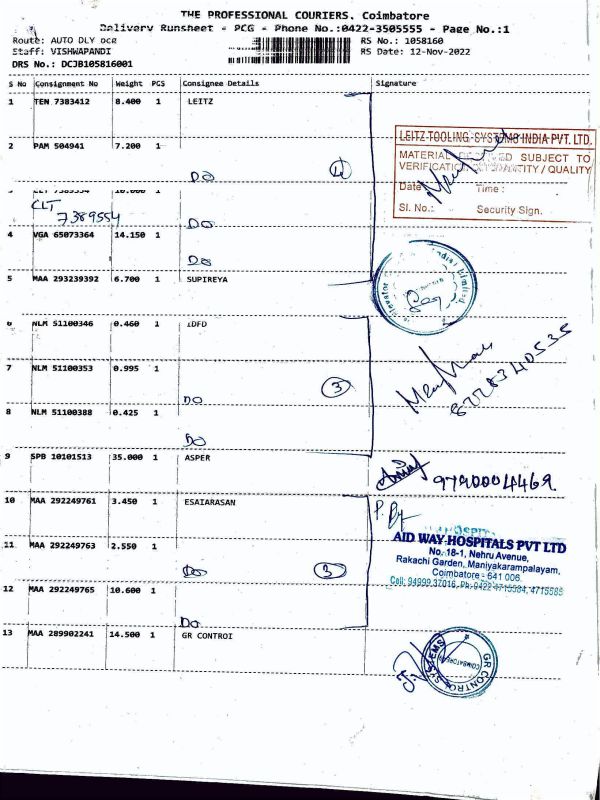 THE PROFESSIONAL COURIERS. Coimbatore
Delivery Runsheet - PCG - Phone No.:0422-3505555 - Page No.:1
Route: AUTO DLY DCR RS No.: 1058160
Staff: VISHWAPANDI RS Date: 12-Nov-2022
DRS No.: DCJB105816001
S No Consignment No Weight PCS Consignee Details Signature
1 TEN 7383412 8.400 1 LEITZ
LEITZ TOOLING SYSTEMS INDIA PVT. LTD.
2 PAM 504941 7.200 1
MATERIAL SUBJECT TO
VERIFICATION QUANTITY / QUALITY
DO 4
Date Time :
CLT 7389554 10.000 1
CLT
7389554
Sl. No.: Security Sign.
DO
4 VGA 65073364 14.150 1
DO
5 MAA 293239392 6.700 1 SUPIREYA
Elevator India) Limited
6 NLM 51100346 0.460 1 IDFD
7 NLM 51100353 0.995 1
3
DO
8228340535
8 NLM 51100388 0.425 1
DO
9 SPB 10101513 35.000 1 ASPER
9790004469
10 MAA 292249761 3.450 1 ESAIARASAN
11 MAA 292249763 2.550 1
AID WAY HOSPITALS PVT LTD
No. 18-1, Nehru Avenue,
Rakachi Garden, Maniyakarampalayam,
Coimbatore - 641 006.
DO 3
Cell: 94999 37016, Ph: 0422 4715584, 4715585
12 MAA 292249765 10.600 1
DO
13 MAA 289902241 14.500 1 GR CONTROI
GR CONTROL SYSTEMS
COIMBATORE